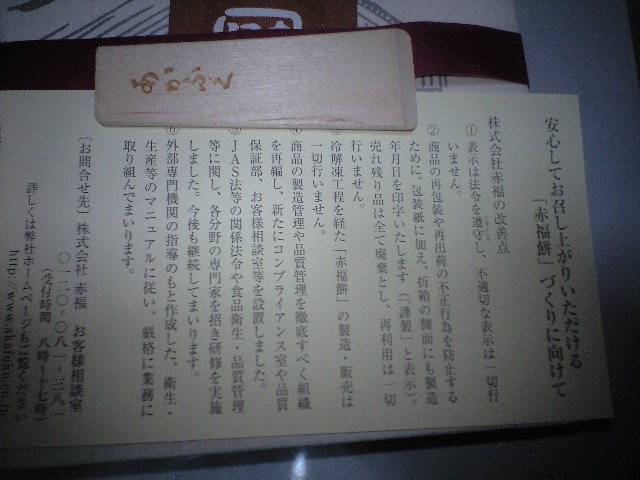 あかふく
安心してお召し上がりいただける
「赤福餅」づくりに向けて
株式会社赤福の改善点
① 表示は法令を遵守し、不適切な表示は一切行
いません。
② 商品の再包装や再出荷の不正行為を防止する
ために、包装紙に加え、折箱の側面にも製造
年月日を印字いたします(「謹製」と表示)。
売れ残り品は全て廃棄とし、再利用は一切
行いません。
③ 冷解凍工程を経た「赤福餅」の製造・販売は
一切行いません。
④ 商品の製造管理や品質管理を徹底すべく組織
を再編し、新たにコンプライアンス室や品質
保証部、お客様相談室等を設置しました。
⑤ JAS法等の関係法令や食品衛生・品質管理
等に関し、各分野の専門家を招き研修を実施
しました。今後も継続してまいります。
⑥ 外部専門機関の指導のもと作成した、衛生・
生産等のマニュアルに従い、厳格に業務に
取り組んでまいります。
〔お問合せ先〕株式会社 赤福 お客様相談室
〇一二〇-〇八一-三八一
(受付時間 八時〜十七時)
詳しくは弊社ホームページもご覧ください
http://www.akafuku.co.jp/